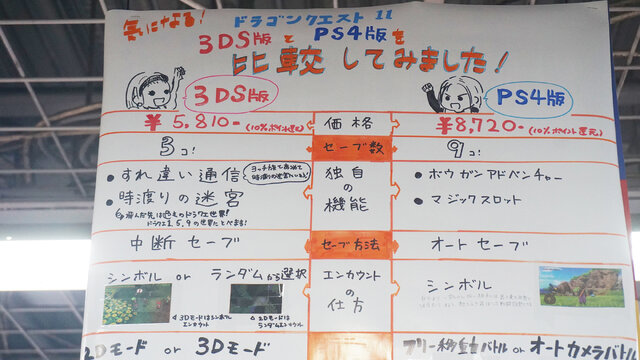 気になる!
ドラゴンクエスト 11
3DS版とPS4版を
比較してみました!
3DS版
PS4版
¥5,810-(10%ポイント還元)
価格
¥8,720-(10%ポイント還元)
3コ!
セーブ数
9コ!
●すれ違い通信
●時渡りの迷宮
独自の機能
●ボウガンアドベンチャー
●マジックスロット
中断セーブ
セーブ方法
オートセーブ
シンボル or ランダムから選択
△3Dモードはシンボルエンカウント
△2Dモードはランダムエンカウント
エンカウントの仕方
シンボル
2Dモード or 3Dモード
フリー移動バトル or オートカメラバトル